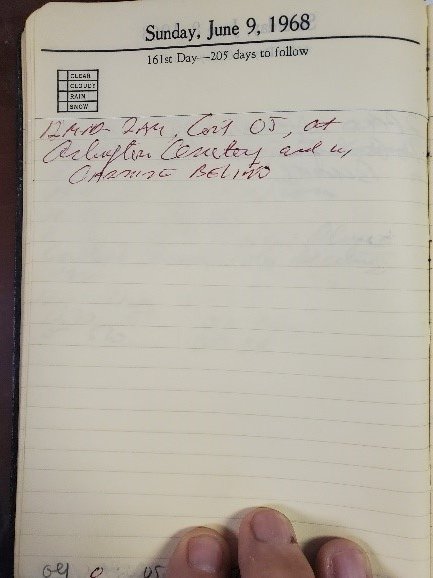 Sunday, June 9, 1968
161st Day—205 days to follow
CLEAR
CLOUDY
RAIN
SNOW
2AM. OT, at
Arlington Cemetery and in
CARMINE BELINO